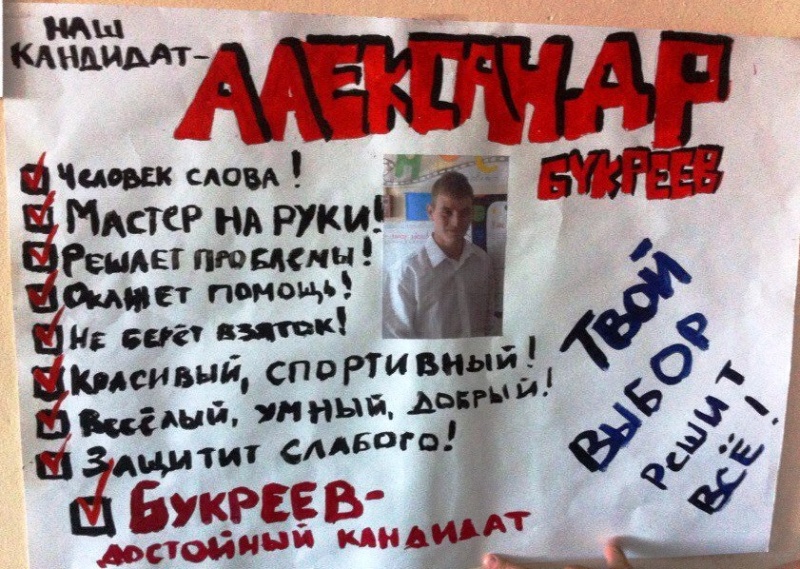 НАШ
КАНДИДАТ-
АЛЕКСАНДР
БУКРЕЕВ
ЧЕЛОВЕК СЛОВА!
МАСТЕР НА РУКИ!
РЕШАЕТ ПРОБЛЕМЫ!
ОКАЖЕТ ПОМОЩЬ!
НЕ БЕРЁТ ВЗЯТОК!
КРАСИВЫЙ, СПОРТИВНЫЙ!
ВЕСЁЛЫЙ, УМНЫЙ, ДОБРЫЙ!
ЗАЩИТИТ СЛАБОГО!
БУКРЕЕВ-
ДОСТОЙНЫЙ КАНДИДАТ
ТВОЙ
ВЫБОР
РЕШИТ
ВСЁ!